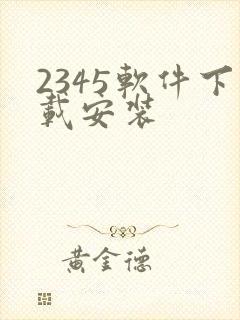 2345軟件下
載安裝
黃金德